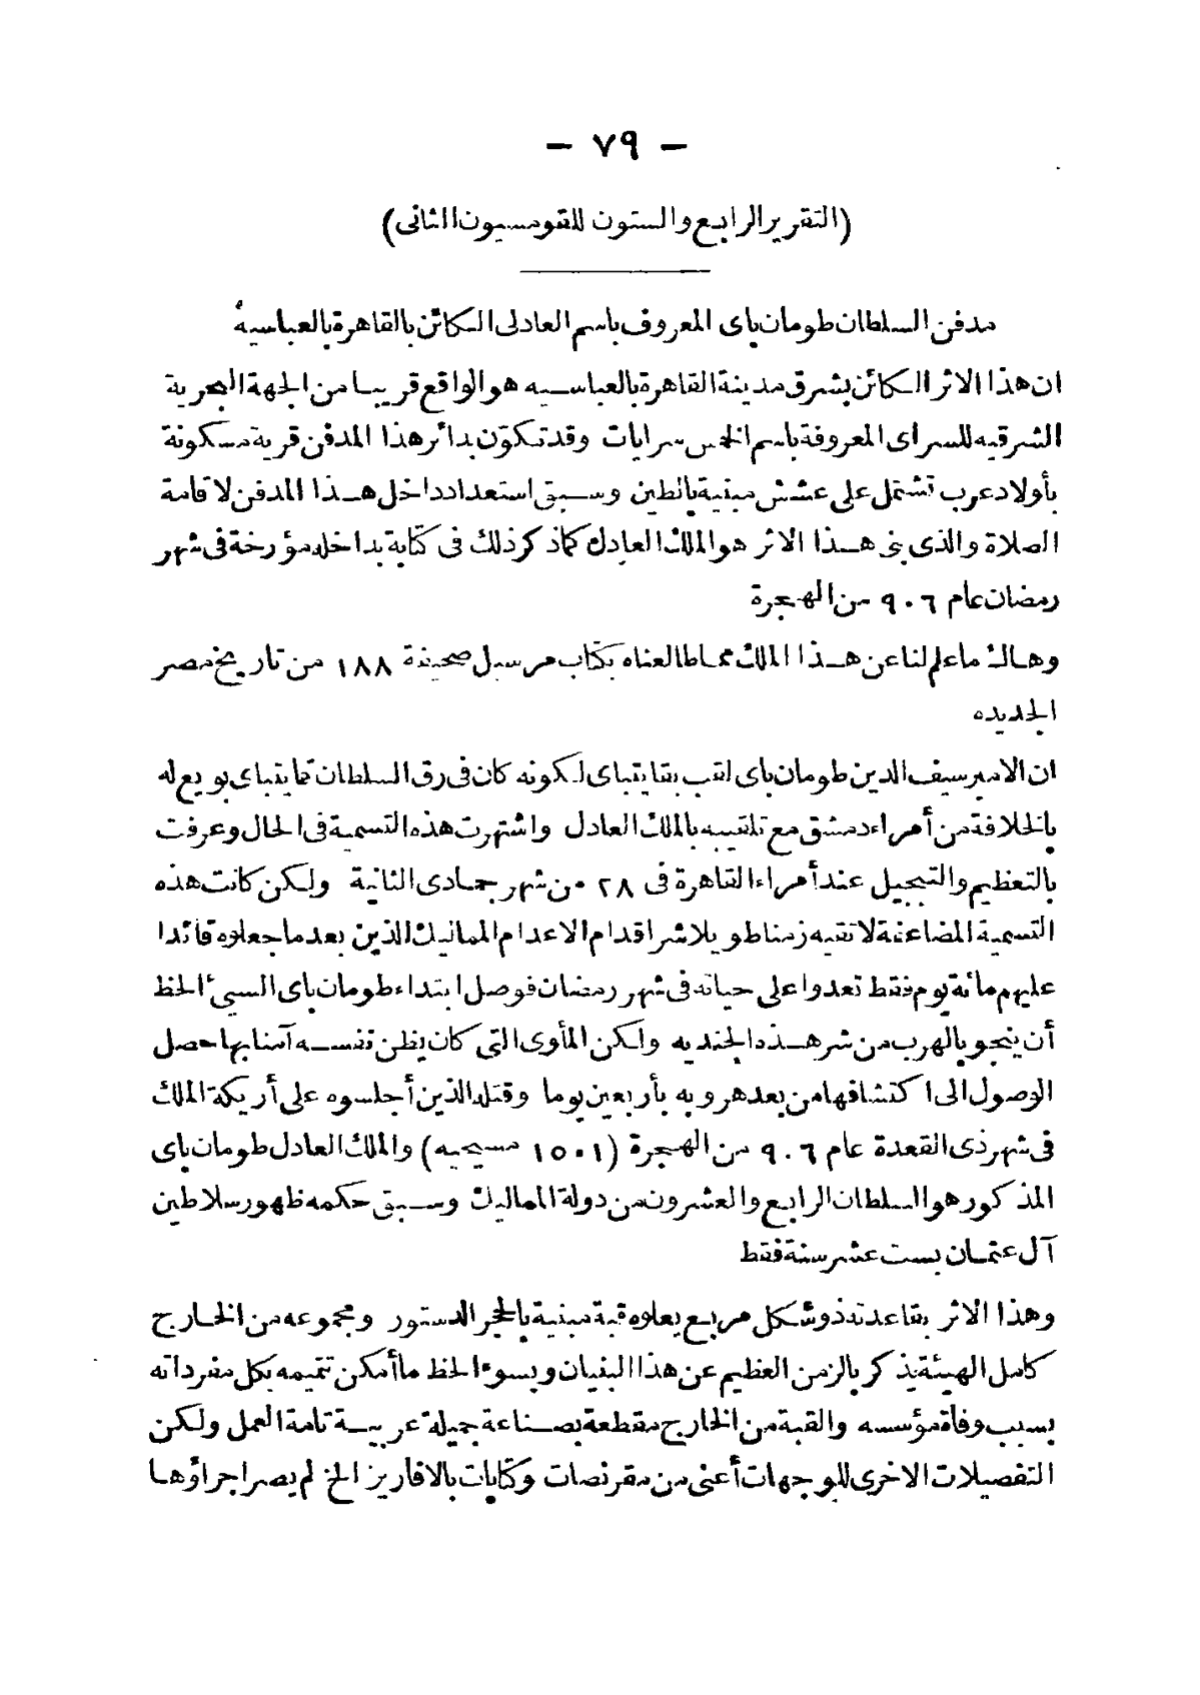 — ٧٩ —
(التقرير الرابع والستون للقومسيون الثانى)
مدفن السلطان طومان باى المعروف باسم العادلى الكائن بالقاهرة بالعباسية
ان هذا الاثر الكائن بشرق مدينة القاهرة بالعباسيه هو الواقع قريبا من الجهة البحرية
الشرقيه للسراى المعروفة باسم الخمس سرايات وقد تكوّن بدائر هذا المدفن قرية مسكونة
بأولاد عرب تشتمل على عشش مبنية بالطين وسبق استعداد داخل هذا المدفن لاقامة
الصلاة والذى بنى هذا الاثر هو الملك العادل كما ذكر ذلك فى كتابة بداخله مؤرخة فى شهر
رمضان عام ٩٠٦ من الهجرة
وهاك ما علم لنا عن هذا الملك مما طالعناه بكتاب مرسيل صحيفة ١٨٨ من تاريخ مصر
الجديده
ان الامير سيف الدين طومان باى لقب بقايتباى لكونه كان فى رق السلطان قايتباى بويع له
بالخلافة من أمراء دمشق مع تلقيبه بالملك العادل واشتهرت هذه التسمية فى الحال وعرفت
بالتعظيم والتبجيل عند أمراء القاهرة فى ٢٨ من شهر جمادى الثانية ولكن كانت هذه
التسمية المضاعفة لا تقيه زمنا طويلا شر اقدام الاعدام المماليك الذين بعد ما جعلوه قائدا
عليهم مائة يوم فقط تعدوا على حياته فى شهر رمضان فوصل ابتداء طومان باى السيئ الحظ
أن ينجو بالهرب من شر هذه الجنديه ولكن المأوى التى كان يظن نفسه آمنا بها حصل
الوصول الى اكتشافها من بعد هروبه بأربعين يوما وقتله الذين أجلسوه على أريكة الملك
فى شهر ذى القعدة عام ٩٠٦ من الهجرة (١٥٠١ مسيحيه) والملك العادل طومان باى
المذكور هو السلطان الرابع والعشرون من دولة المماليك وسبق حكمه ظهور سلاطين
آل عثمان بست عشر سنة فقط
وهذا الاثر بقاعدته ذو شكل مربع يعلوه قبة مبنية بالحجر الدستور ومجموعه من الخارج
كامل الهيئة يذكر بالزمن العظيم عن هذا البنيان وبسوء الحظ ما أمكن تتميمه بكل مفرداته
بسبب وفاة مؤسسه والقبة من الخارج مقطعة بصناعة جميلة عربية تامة العمل ولكن
التفصيلات الاخرى للوجهات أعنى من مقرنصات وكتابات بالافاريز الخ لم يصر اجراؤها